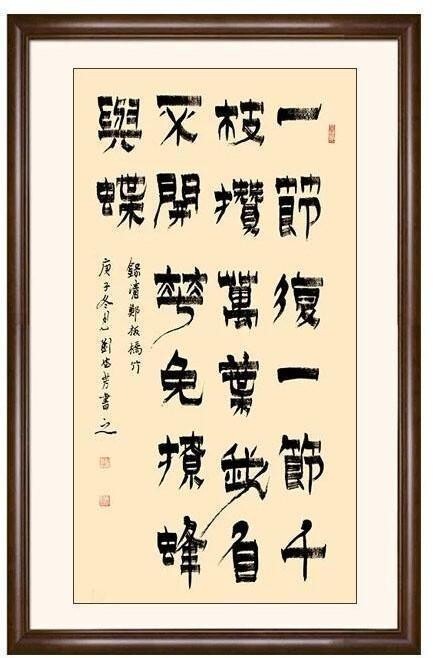 一節復一節千
枝攢萬葉我自
不開花免撩蜂
與蝶
錄清鄭板橋竹
庚子冬月劉芳書之